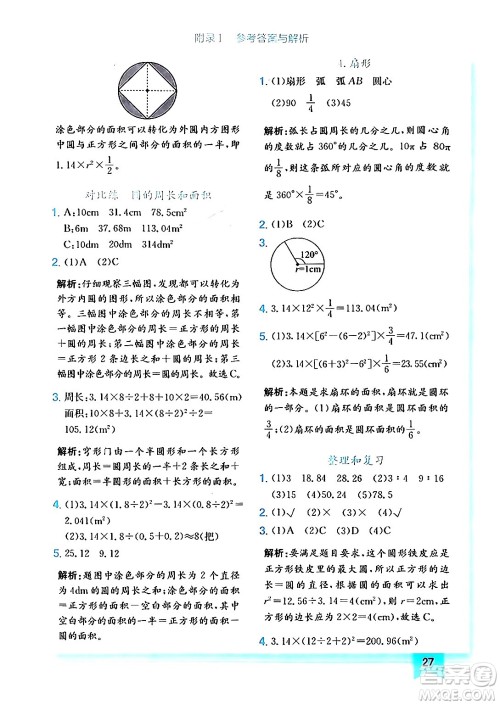 附录1 参考答案与解析
涂色部分的面积可以转化为外圆内方图形中
圆与正方形之间部分的面积的一半，即
3.14×r²×1/2。
对比练 圆的周长和面积
1. A:10cm 31.4cm 78.5cm²
B:6m 37.68m 113.04m²
C:10dm 20dm 314dm²
2. (1)A (2)C
解析:仔细观察三幅图，发现都可以转化为
外方内圆的图形，并比较涂色部分的面积。
三幅图中涂色部分的周长不相等，第
一幅图中涂色部分的周长=正方形的周长+
圆的周长；第二幅图中涂色部分的周长=
正方形2条边长之和+圆的周长；第三
幅图中涂色部分的周长=圆的周长。故选C。
3. 周长:3.14×8÷2+8+10×2=40.56(m)
面积:10×8+3.14×(8÷2)²÷2=
105.12(m²)
解析:穹形门是由一个半圆形和一个长方形
组成，周长=圆周长的一半+长方形的一条
宽+两条长，面积=半圆形的面积+长方
形的面积。
4. (1)3.14×(1.8÷2)²-3.14×(0.8÷2)²=
2.041(m²)
(2)3.14×1.8÷0.95≈6(把)
5. 25.12 9.12
解析:题图中涂色部分的周长为2个直径
为4dm的圆的周长之和；涂色部分的面积
=正方形的面积-空白部分的面积，其中
空白部分的面积=(正方形的面积-圆的面
积)×2。
4.扇形
1. (1)扇形 弧 弧AB 圆心
(2)90 1/4 (3)45
解析:弧长占圆周长的几分之几，则圆心角
的度数就占360°的几分之几。10π占80π
的1/8，所以圆心角的度数占圆周角度数的
1/8，即360°×1/8=45°。
2. (1)B (2)C
3. 120°
r=1cm
4. 3.14×12²×1/4=113.04(m²)
5. (1)3.14×[6²-(6-2)²]×3/4=47.1(cm²)
(2)3.14×[(6+3)²-6²]×1/3=47.1(cm²)
解析:本题是求扇环的面积，扇环就是圆环
的一部分。(1)题中，扇环的面积是圆环面积的
3/4；(2)题中，扇环的面积是圆环面积的1/3。
整理和复习
1. (1)3 18.84 28.26 (2)2:3 9:16
2. (1)√ (2)× (3)× (4)√
3. (1)A (2)C (3)C
解析:要满足题意，这个圆形铁皮应是
正方形铁皮里的最大圆，此时正方形铁皮
的边长=圆的直径，根据圆的面积=πr²，
得r²=12.56÷3.14=4，则r=2，即
正方形的边长=圆的直径=2×2=4(dm)，
故选C。
4. 3.14×(12÷2+2)²=200.96(m²)
27